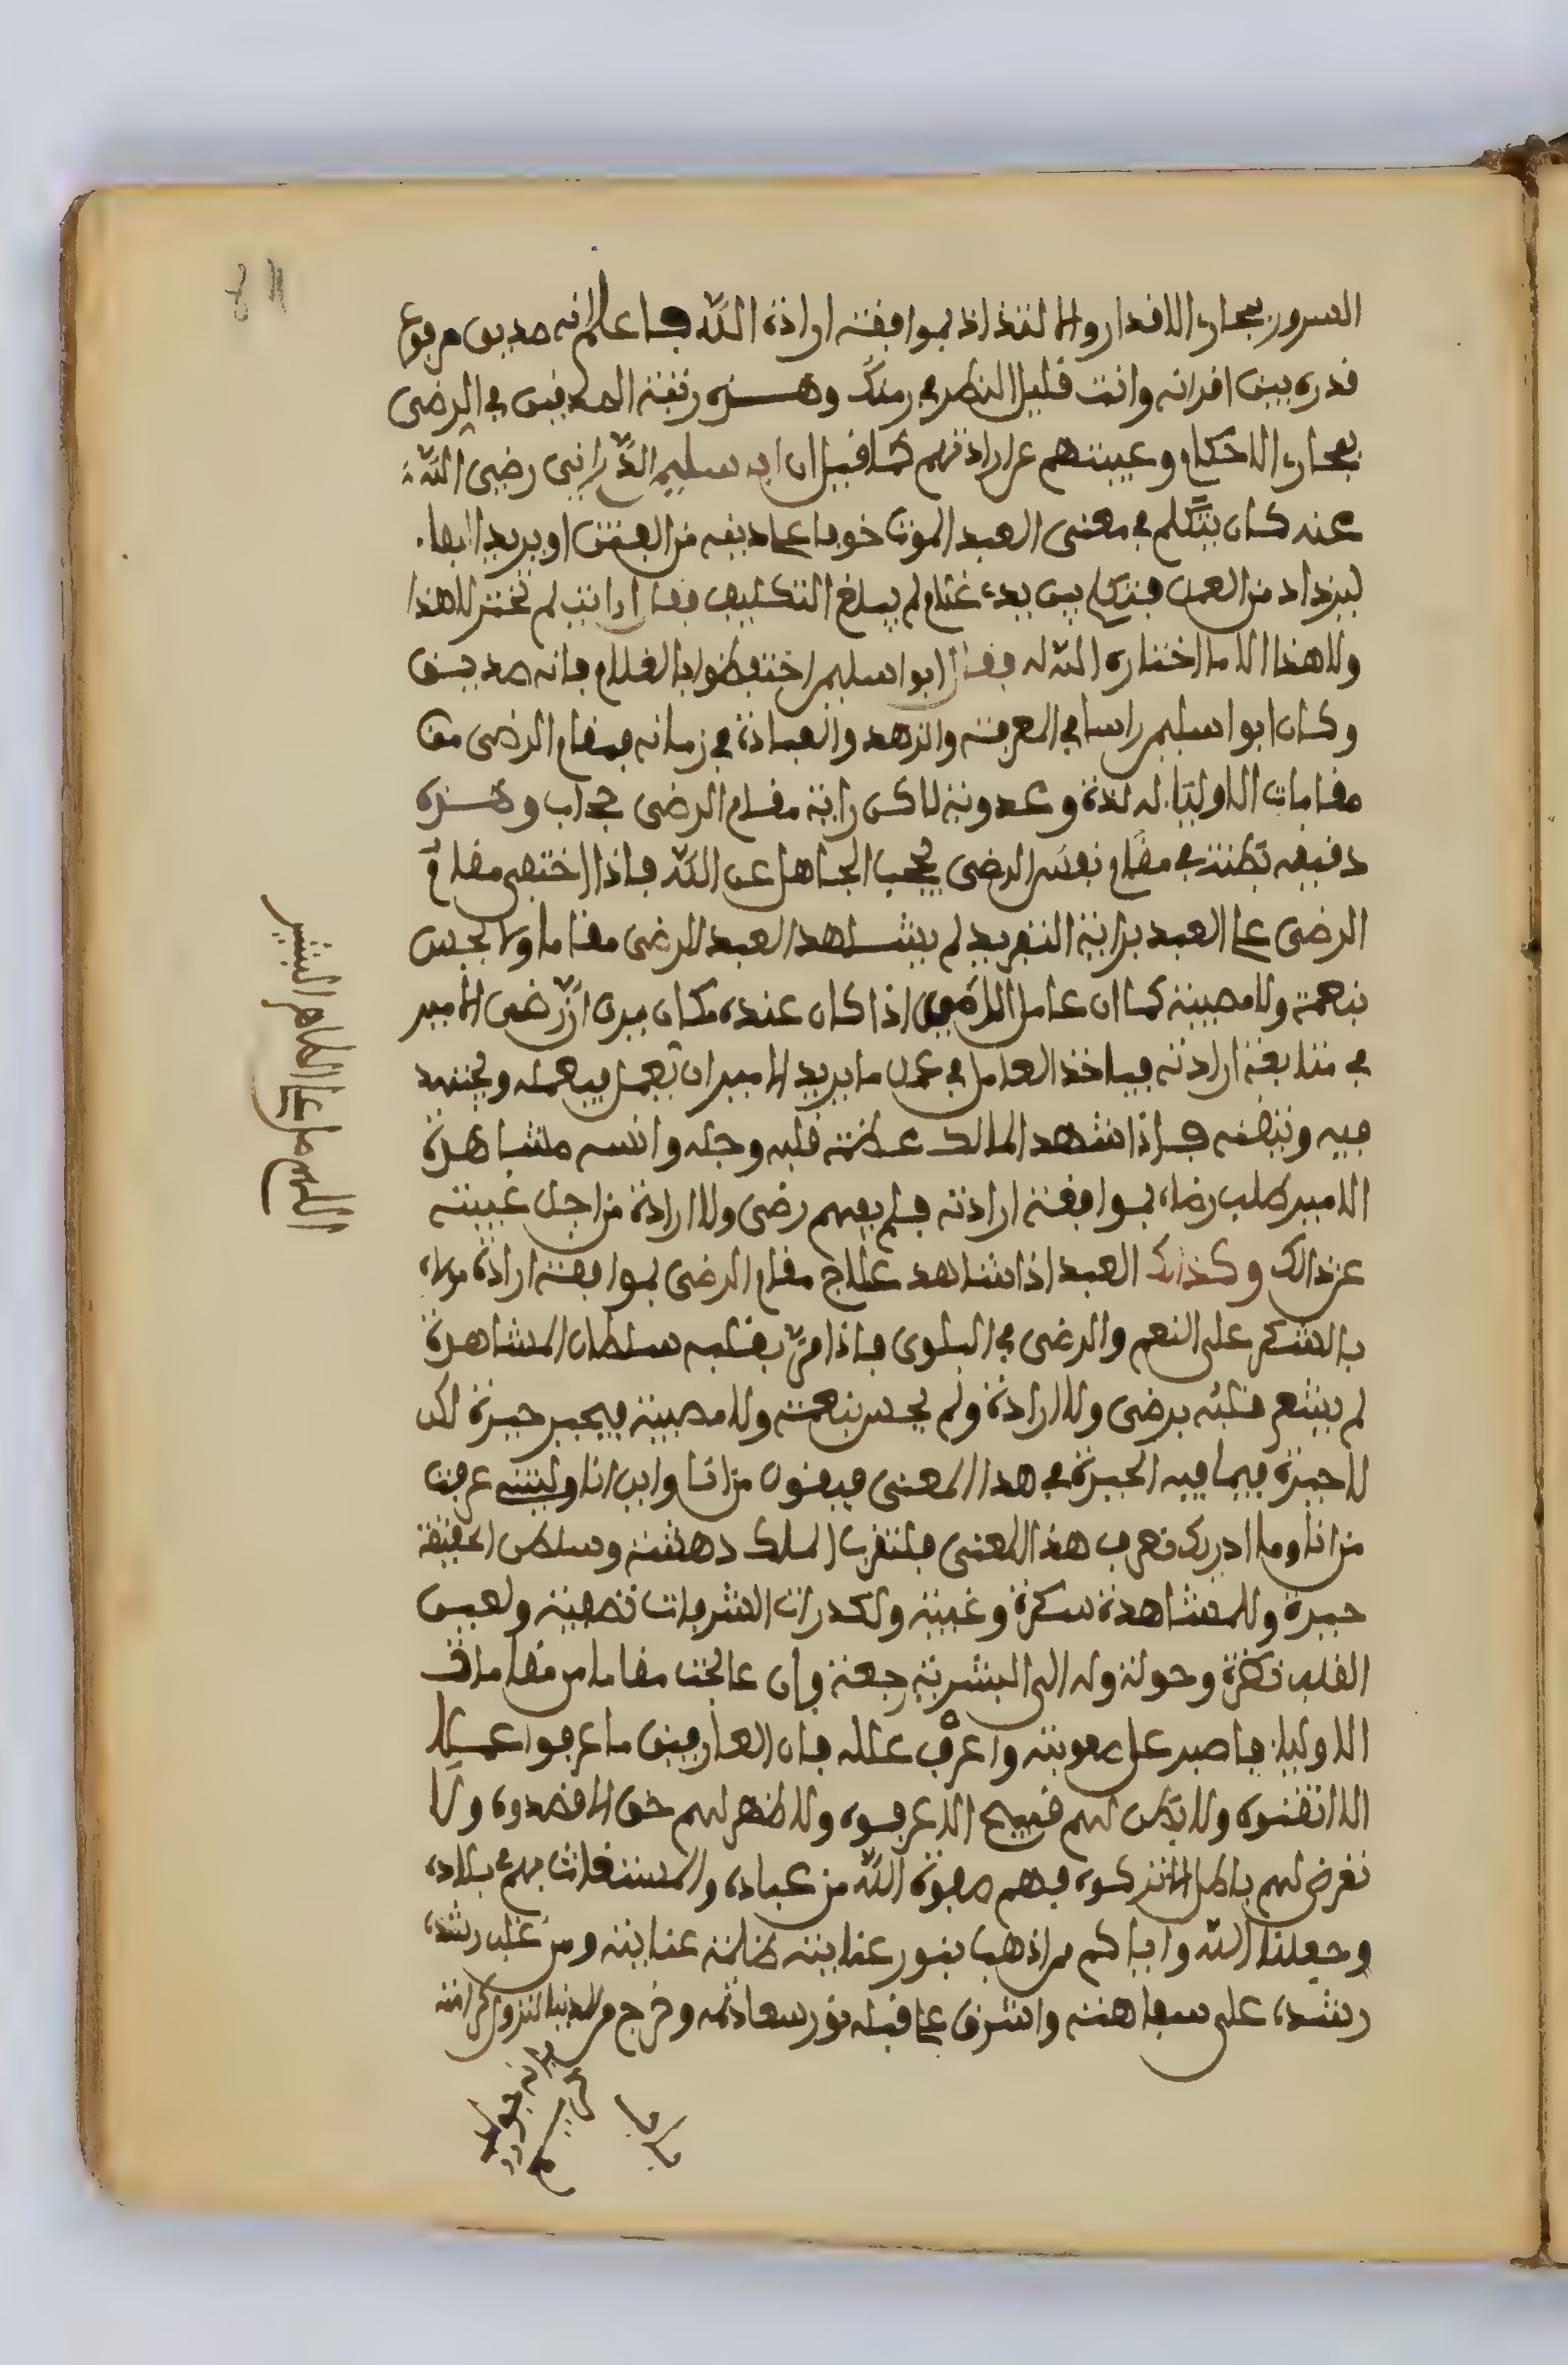 السرور بمجاري الاقدار والالتذاذ بموافقة ارادة الله فاعلم انه صديق مرفوع
قدره بين اقرانه وانت قليل النظر في زمنك وهذه رتبة الصديقين في الرضى
بمجاري الاحكام وغيبتهم عن ارادتهم كما قيل ان ابا سليمن الداراني رضي الله
عنه كان يتكلم في معنى العبد الموت خوفا على دينه من الفتن او يريد البقا
ليزداد من العمل فتكلم بين يديه غلام لم يبلغ التكليف فقال ارايت لم تختر لا هذا
ولا هذا الا ما اختاره الله له فقال ابوا سليمن احتفظوا بالغلام فانه صديق
وكان ابوا سليمن راسا في المعرفة والزهد والعبادة في زمانه فمقام الرضى من
مقامات الاوليا له لذة وعذوبة لاكن رؤية مقام الرضى حجاب وهذه
دقيقة تكنت في مقام نفس الرضى يحجب الجاهل عن الله فاذا اختفى مقام
الرضى على العبد برؤية التفريد لم يشاهد العبد الرضى مقاما ولا يحس
بنعمة ولا مصيبة كما ان عامل الامير اذا كان عنده مكان يرى ان رضى الامير
في متابعة ارادته فياخذ العامل في عمل ما يريد الامير ان يعمل فيعمله ويجتهد
فيه ويتقنه فاذا شهد المالك عظمته قلبه وجله وانسه مشاهدة
الامير طلب رضاه بموافقة ارادته فلم يفهم رضى ولا ارادة من اجل غيبته
عن ذالك وكذالك العبد اذا شاهد علاج مقام الرضى بموافقة ارادة مولاه
بالشكر على النعم والرضى في البلوى فاذا مر بقلبه سلطان المشاهدة
لم يشعر قلبه برضى ولا ارادة ولم يحس بنعمة ولا مصيبة فيحير حيرة لكن
لا حيرة فيما فيه الحيرة في هذا المعنى فيقول من انا واين انا وليته عرف
من انا وما ادريك تعرف هذا المعنى فلتقرب الملك دهشة وسلطن الحقيقة
حيرة وللمشاهدة سكرة وغيبة ولكدرات الشربات تصفية ولعين
القلب فكرة وجولة وله الى البشرية رجعة وان عالجت مقاما من مقامات
الاوليا فاصبر على صعوبته واعرف علله فان العارفين ما عرفوا عملا
الا اتقنوه ولا بطن لهم قبيح الا عرفوه ولا ظهر لهم حق الا قصدوه ولا
تعرض لهم باطل الا تركوه فهم صفوة الله من عباده والمستغاث بهم في بلاده
وجعلنا الله واياكم ممن اذهب بنور عنايته ظلمة عنايته ومن غلب رشده
رشده على سفاهته واشرق على قبله نور سعادته وخرج من الدنيا لنزول كرامته
اللهم صل على الطاهر البشير